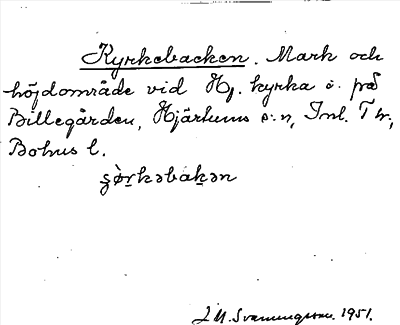 Kyrkebacken. Mark och
höjdområde vid Hj. kyrka o. på
Billegården, Hjärtums s:n, Inl. T hr,
Bohus l.
J.M. 1951.